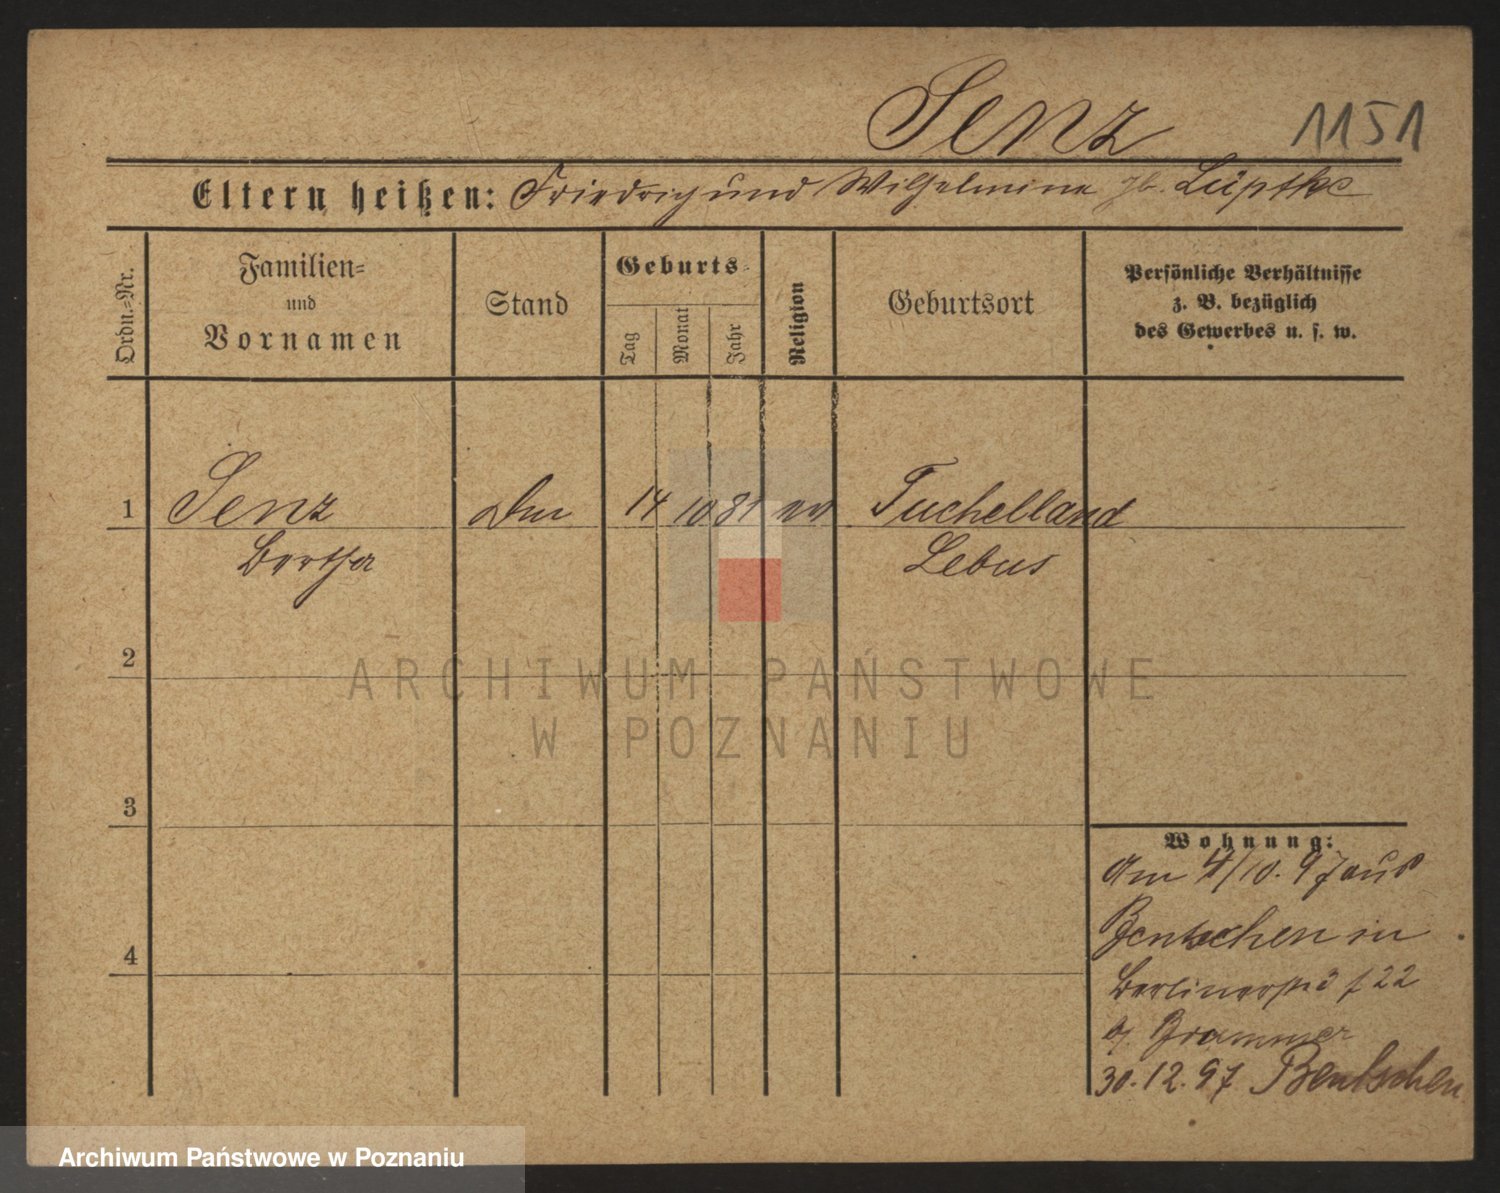 Senz 1151
Eltern heißen: Friedrich und Wilhelmine gb. Lüptke
Ordn.-Nr.
Familien-
und
Vornamen
Stand
Geburts-
Tag
Monat
Jahr
Religion
Geburtsort
Persönliche Verhältnisse
z. B. bezüglich
des Gewerbes u. s. w.
1 Senz 14 10 81 ev Tuchelland
Bertha Lebus
2
3
4
Wohnung:
Am 4/10. 97 aus
Bentschen in
Berlinerstr 22
Brammer
30.12.97 Bentschen
ARCHIWUM PAŃSTWOWE
W POZNANIU
Archiwum Państwowe w Poznaniu